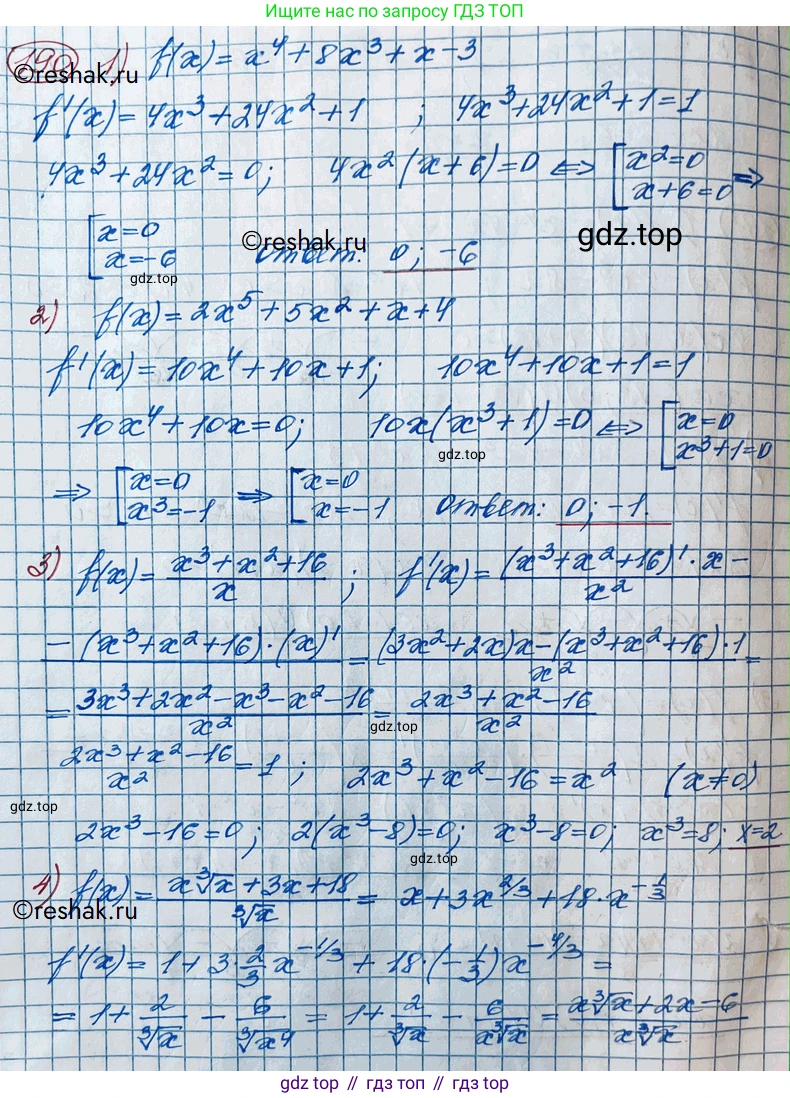 Ищите нас по запросу ГДЗ ТОП
190 1) f(x) = x⁴ + 8x³ + x − 3
©reshak.ru
f'(x) = 4x³ + 24x² + 1 ; 4x³ + 24x² + 1 = 1
4x³ + 24x² = 0; 4x²(x + 6) = 0 ⟺ [x² = 0 x + 6 = 0 ⟹
[x = 0 x = −6 Ответ: 0; −6
©reshak.ru gdz.top
gdz.top
2) f(x) = 2x⁵ + 5x² + x + 4
f'(x) = 10x⁴ + 10x + 1; 10x⁴ + 10x + 1 = 1
10x⁴ + 10x = 0; 10x(x³ + 1) = 0 ⟺ [x = 0 x³ + 1 = 0
gdz.top
⟹ [x = 0 x³ = −1 ⟹ [x = 0 x = −1 Ответ: 0; −1.
3) f(x) = (x³ + x² + 16)/x ; f'(x) = ((x³ + x² + 16)' · x −)/x²
(− (x³ + x² + 16) · (x)')/ = ((3x² + 2x)x − (x³ + x² + 16) · 1)/x² =
= (3x³ + 2x² − x³ − x² − 16)/x² = (2x³ + x² − 16)/x²
gdz.top
(2x³ + x² − 16)/x² = 1 ; 2x³ + x² − 16 = x² (x ≠ 0)
gdz.top
2x³ − 16 = 0; 2(x³ − 8) = 0; x³ − 8 = 0; x³ = 8; x = 2
gdz.top
4) f(x) = (x∛x + 3x + 18)/∛x = x + 3x^(2/3) + 18 · x^(−1/3)
©reshak.ru
f'(x) = 1 + 3 · 2/3 x^(−1/3) + 18 · (−1/3) x^(−4/3) =
= 1 + 2/∛x − 6/∛x⁴ = 1 + 2/∛x − 6/(x∛x) = (x∛x + 2x − 6)/(x∛x)
gdz.top // гдз топ // gdz.top